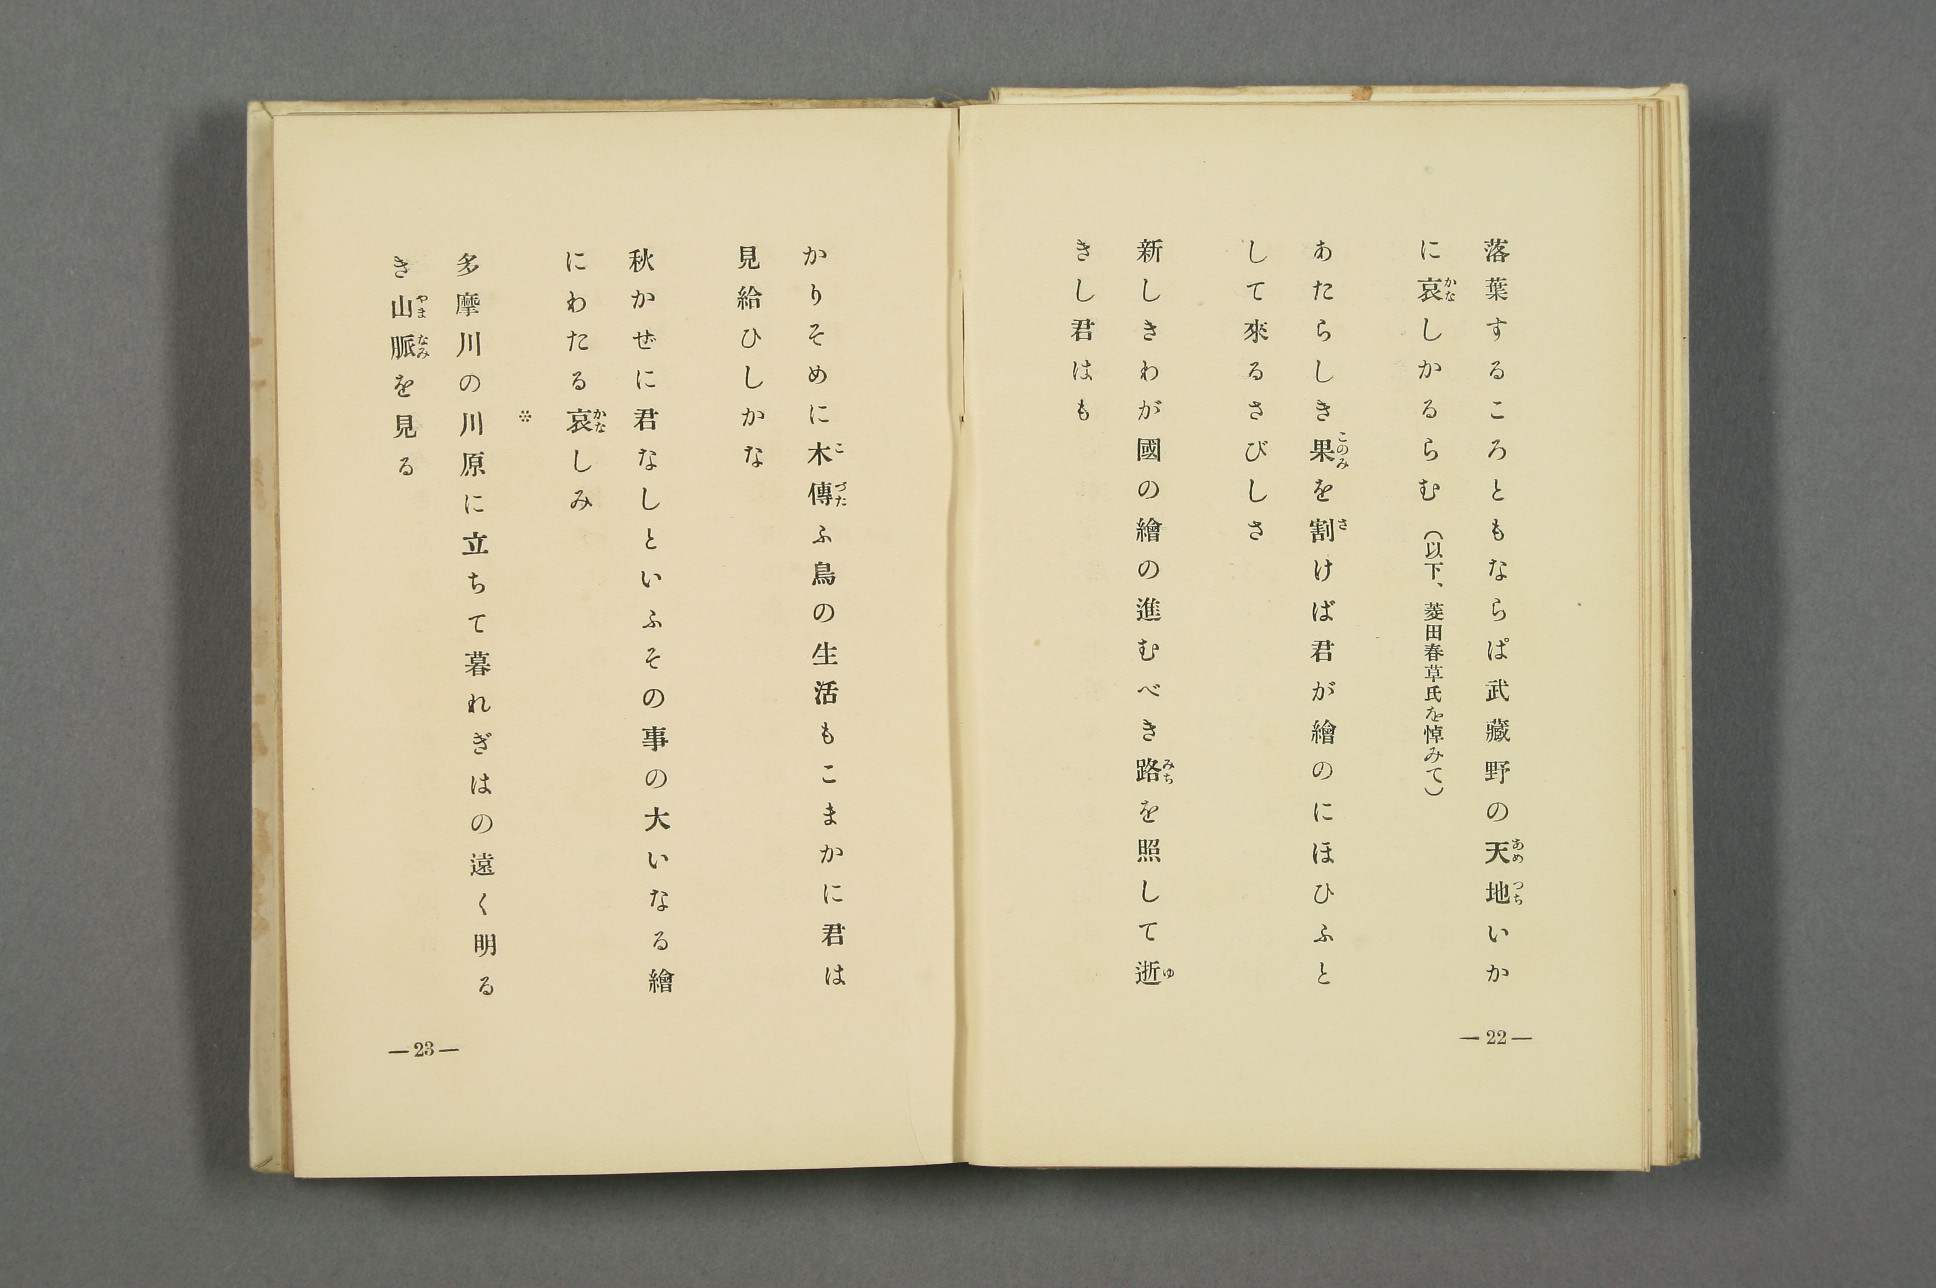 落葉するころともならば武藏野の天地いか
に哀しかるらむ（以下、菱田春草氏を悼みて）
あたらしき果を割けば君が繪のにほひふと
して來るさびしさ
新しきわが國の繪の進むべき路を照して逝
きし君はも
—22—
かりそめに木傳ふ鳥の生活もこまかに君は
見給ひしかな
秋かぜに君なしといふその事の大いなる繪
にわたる哀しみ
※
多摩川の川原に立ちて暮れぎはの遠く明る
き山脈を見る
—23—